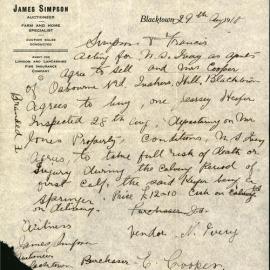 JAMES SIMPSON
AUCTIONEER
FARM AND HOME
SPECIALIST
AUCTION SALES
CONDUCTED
AGENT FOR
LONDON AND LANCASHIRE
FIRE INSURANCE
COMPANY
Blacktown 29th Aug
Simpson & Francis
acting for N. S. Ivory as agents
agree to sell and Mr Cooper
of Osbourne Rd, Hill, Blacktown
agrees to buy, one Jersey Heifer
Inspected 28th aug, on Mr
Jones Property, Conditions, N. S. Ivory
agrees, to take full risk of death or
Injury during the calving Period of
first calf, the said Heifer being a
Springer. Price £12-10 Cash on
on delivery.
Branded
Witness
James Simpson
Auctioneer
Blacktown
Vendor N. Ivory
Purchaser C. Cooper